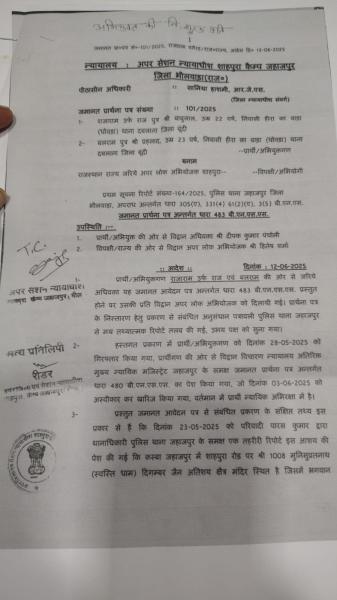 अभियुक्त की निःशुल्क प्रति
1
जमानत प्रा०पत्र सं०-101/2025, राजाराम वगैरह/राज०राज्य, आदेश दि० 12-06-2025
न्यायालय : अपर सेशन न्यायाधीश शाहपुरा कैम्प जहाजपुर
जिला भीलवाड़ा(राज०)
पीठासीन अधिकारी : सानिया हाशमी, आर.जे.एस.
(जिला न्यायाधीश संवर्ग)
जमानत प्रार्थना पत्र संख्या : 101/2025
1- राजाराम उर्फ राज पुत्र श्री बाबूलाल, उम्र 22 वर्ष, निवासी हीरा का बाड़ा
थाना दबलाना जिला बूंदी
2- बलराम पुत्र श्री प्रहलाद, उम्र 23 वर्ष, निवासी हीरा का बाड़ा थाना
दबलाना जिला बूंदी --प्रार्थी/अभियुक्तगण
बनाम
राजस्थान राज्य जरिये अपर लोक अभियोजक शाहपुरा-- --विपक्षी/अभियोगी
प्रथम सूचना रिपोर्ट संख्या-164/2025, पुलिस थाना जहाजपुर जिला
भीलवाड़ा, अपराध अन्तर्गत धारा 305(ए), 331(4) 61(2)(ए), 3(5) बी.एन.एस.
जमानत प्रार्थना पत्र अन्तर्गत धारा 483 बी.एन.एस.एस.
उपस्थिति :-
1. प्रार्थी/अभियुक्त की ओर से विद्वान अधिवक्ता श्री दीपक कुमार पंचोली
2. विपक्षी/राज्य की ओर से विद्वान अपर लोक अभियोजक श्री हितेष शर्मा
T.C.
:: आदेश :: दिनांक : 12-06-2025
1- प्रार्थी/अभियुक्तगण राजाराम उर्फ राज एवं बलराम की ओर से जरिये
अधिवक्ता यह जमानत आवेदन पत्र अन्तर्गत धारा 483 बी.एन.एस.एस. प्रस्तुत
होने पर उसकी प्रति विद्वान अपर लोक अभियोजक को दिलायी गई। प्रार्थना पत्र
के निस्तारण हेतु प्रकरण से संबंधित अनुसंधान पत्रावली पुलिस थाना जहाजपुर
से मय तथ्यात्मक रिपोर्ट तलब की गई, उभय पक्ष को सुना गया।
अपर सेशन न्यायाधीश
शाहपुरा कैम्प जहाजपुर,
2- हस्तगत प्रकरण में प्रार्थी/अभियुक्तगण को दिनांक 28-05-2025 को
गिरफ्तार किया गया, प्रार्थीगण की ओर से विद्वान विचारण न्यायालय अतिरिक्त
मुख्य न्यायिक मजिस्ट्रेट जहाजपुर के समक्ष जमानत प्रार्थना पत्र अन्तर्गत
धारा 480 बी.एन.एस.एस. का पेश किया गया, जो दिनांक 03-06-2025 को
अस्वीकार कर खारिज किया गया, वर्तमान में प्रार्थी न्यायिक अभिरक्षा में है।
सत्य प्रतिलिपि
रीडर
3- प्रस्तुत जमानत आवेदन पत्र से संबंधित प्रकरण के संक्षिप्त तथ्य इस
प्रकार से है कि दिनांक 23-05-2025 को परिवादी पारस कुमार द्वारा
थानाधिकारी पुलिस थाना जहाजपुर के समक्ष एक तहरीरी रिपोर्ट इस आशय की
पेश की गई कि कस्बा जहाजपुर में शाहपुरा रोड पर श्री 1008 मुनिसुव्रतनाथ
(स्वस्ति धाम) दिगम्बर जैन अतिशय क्षेत्र मंदिर स्थित है जिसमें भगवान